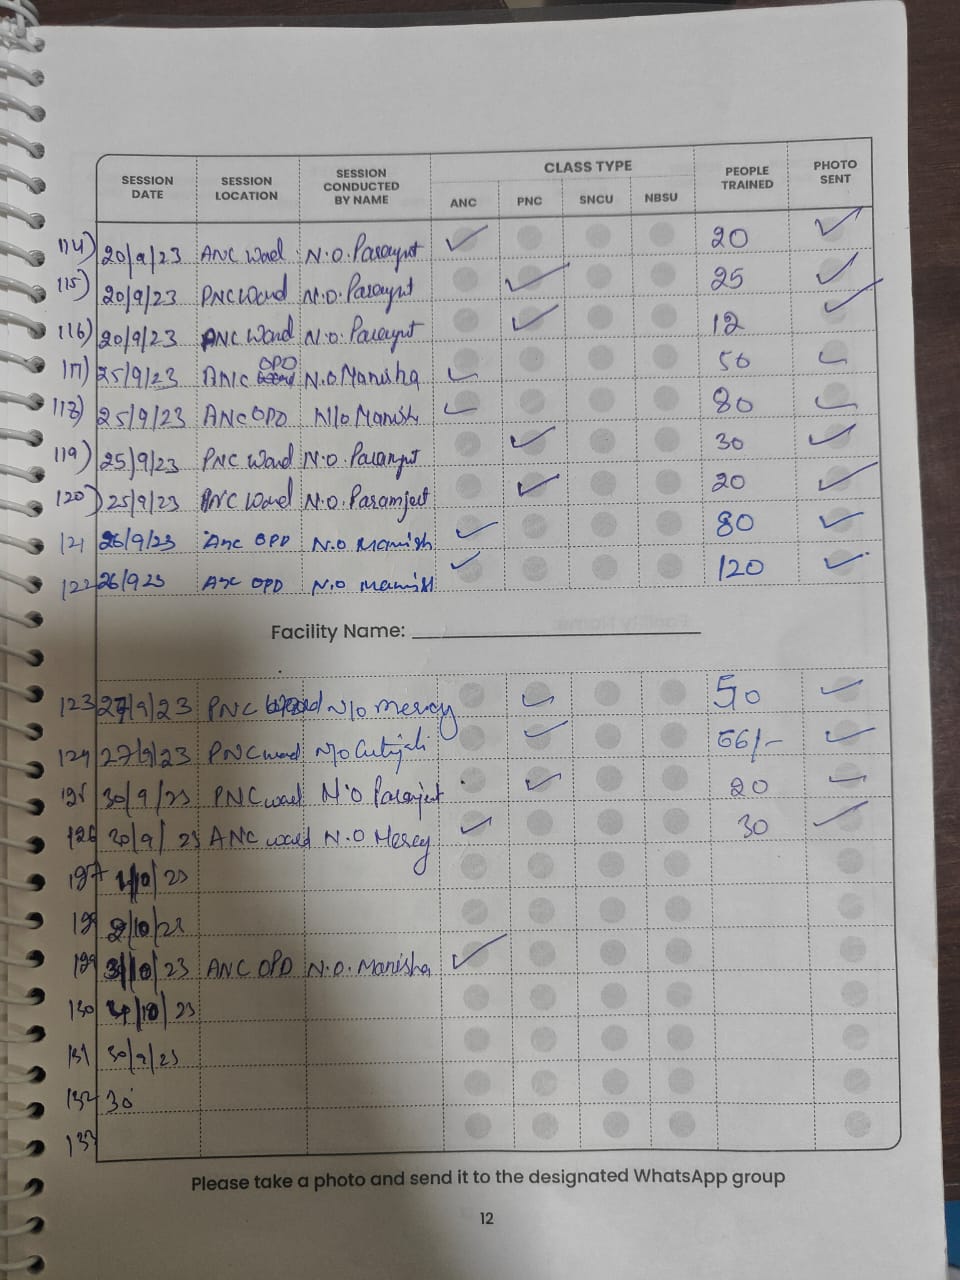 SESSION DATE SESSION LOCATION SESSION CONDUCTED BY NAME CLASS TYPE PEOPLE TRAINED PHOTO SENT
ANC PNC SNCU NBSU
114) 20/9/23 ANC Wad N.O. Paramjut ✓ 20 ✓
115) 20/9/23 PNC Ward N.O. Paramjut ✓ 25 ✓
116) 20/9/23 PNC Ward N.O. Paramjut ✓ 12 ✓
117) 25/9/23 ANC OPD N.O Manisha ✓ 50 ✓
118) 25/9/23 ANC OPD N/o Manish ✓ 80 ✓
119) 25/9/23 PNC Ward N.O. Paramjut ✓ 30 ✓
120) 25/9/23 PNC Ward N.O. Paramjeet ✓ 20 ✓
121 26/9/23 Anc OPD N.O Manish ✓ 80 ✓
122 26/9 23 Anc OPD N.O Manish ✓ 120 ✓
Facility Name:
123 27/9/23 PNC N/o Mercy ✓ 50 ✓
124 27/9/23 PNC ward N/o ✓ 66/- ✓
125 30/9/23 PNC ward N.O Paramjeet ✓ 20 ✓
126 30/9/23 ANC ward N.O Mercy ✓ 30 ✓
127 1/10/23
128 2/10/23
129 3/10/23 ANC OPD N.O. Manisha ✓
130 /10/23
131 30/9/23
132 30
133
Please take a photo and send it to the designated WhatsApp group
12